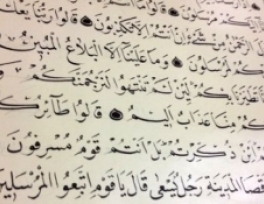 مُرْسَلُونَ ۝ قَالُوا
الرَّحْمٰنُ مِنْ شَيْءٍ اِنْ اَنْتُمْ اِلَّا تَكْذِبُونَ ۝ قَالُوا رَبُّنَا يَعْلَمُ
لَمُرْسَلُونَ ۝ وَمَا عَلَيْنَا اِلَّا الْبَلَاغُ الْمُبِينُ
تَطَيَّرْنَا بِكُمْ لَئِنْ لَمْ تَنْتَهُوا لَنَرْجُمَنَّكُمْ
مِنَّا عَذَابٌ اَلِيمٌ ۝ قَالُوا طَائِرُكُمْ
ذُكِّرْتُمْ بَلْ اَنْتُمْ قَوْمٌ مُسْرِفُونَ
الْمَدِينَةِ رَجُلٌ يَسْعٰى قَالَ يَا قَوْمِ اتَّبِعُوا الْمُرْسَلِينَ